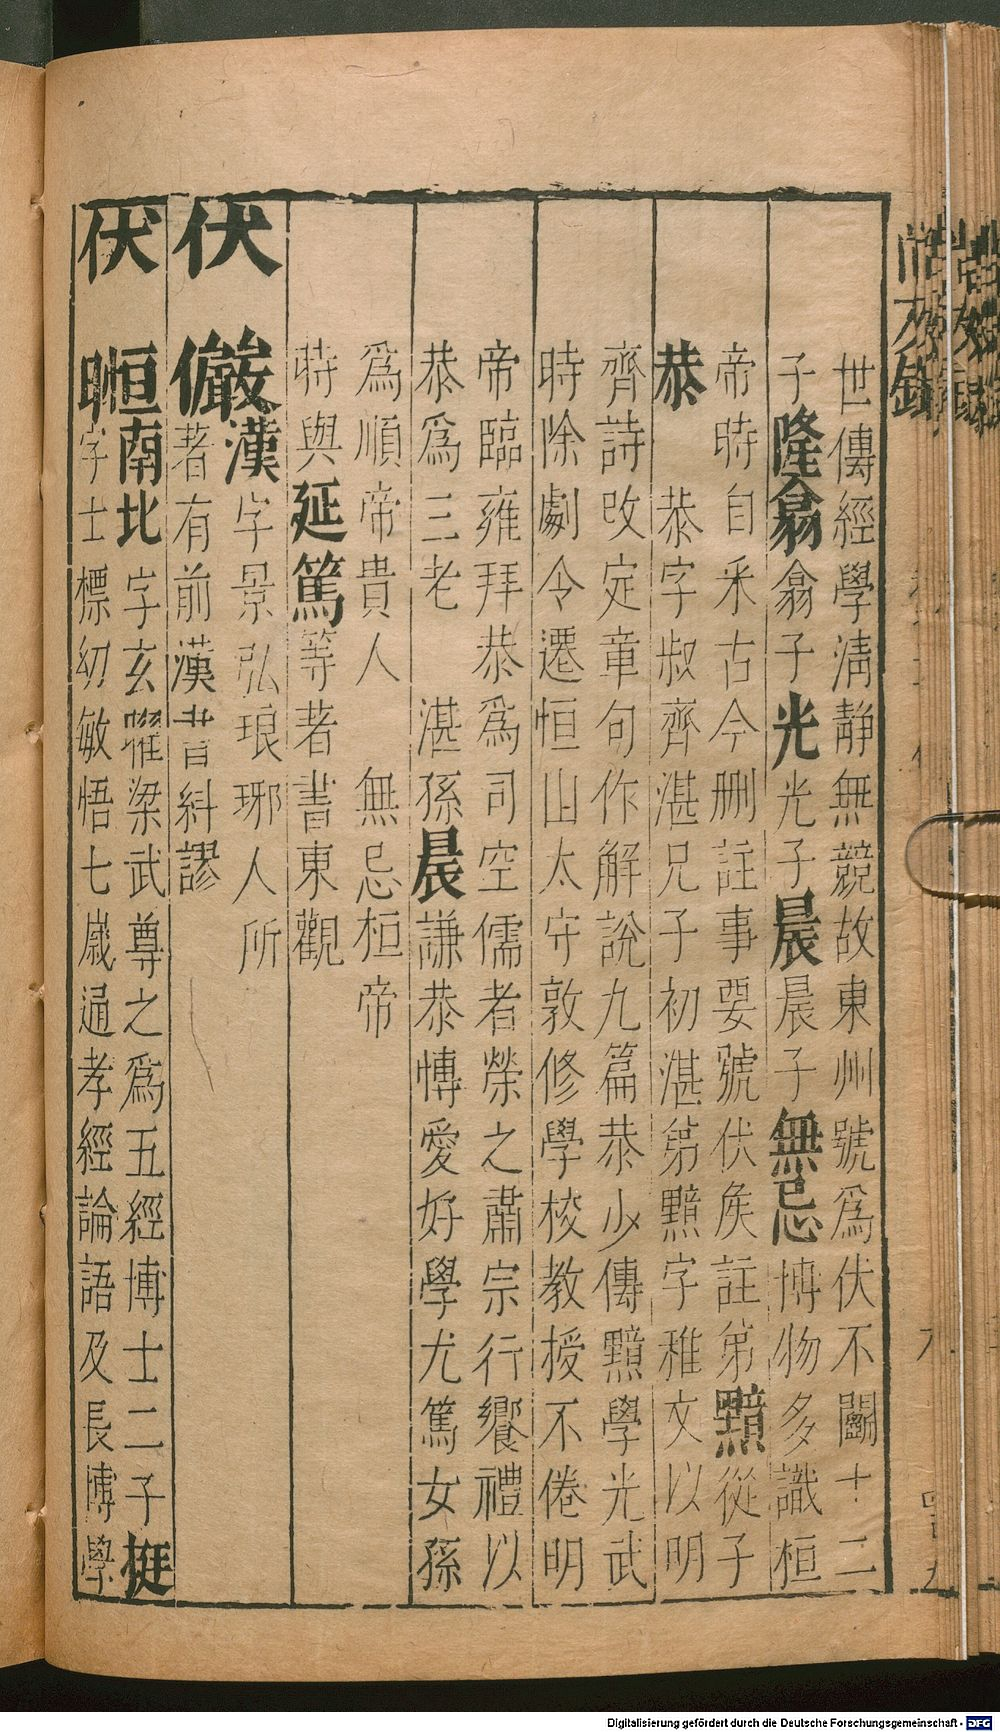 世傳經學清靜無競故東州號為伏不鬬十二
子隆翕翕子光光子晨晨子無忌博物多識桓
帝時自采古今删註事要號伏矦註第黯從子
恭　恭字叔齊湛兄子初湛第黯字稚文以明
齊詩改定章句作解說九篇恭少傳黯學光武
時除劇令遷恒山太守敦修學校教授不倦明
帝臨雍拜恭為司空儒者榮之肅宗行饗禮以
恭為三老　湛孫晨謙恭博愛好學尤篤女孫
為順帝貴人　無忌桓帝
時與延篤等著書東觀
伏儼漢字景弘琅琊人所
著有前漢書糾謬
伏恒南北字玄曜梁武尊之為五經博士二子挺
字士標幼敏悟七歲通孝經論語及長博學
Digitalisierung gefördert durch die Deutsche Forschungsgemeinschaft - DFG